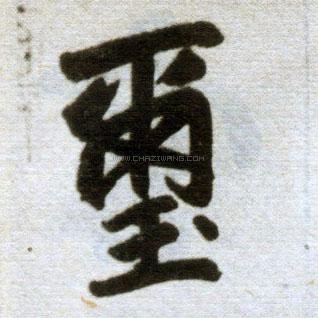 璽
WWW.CHAZIWANG.COM